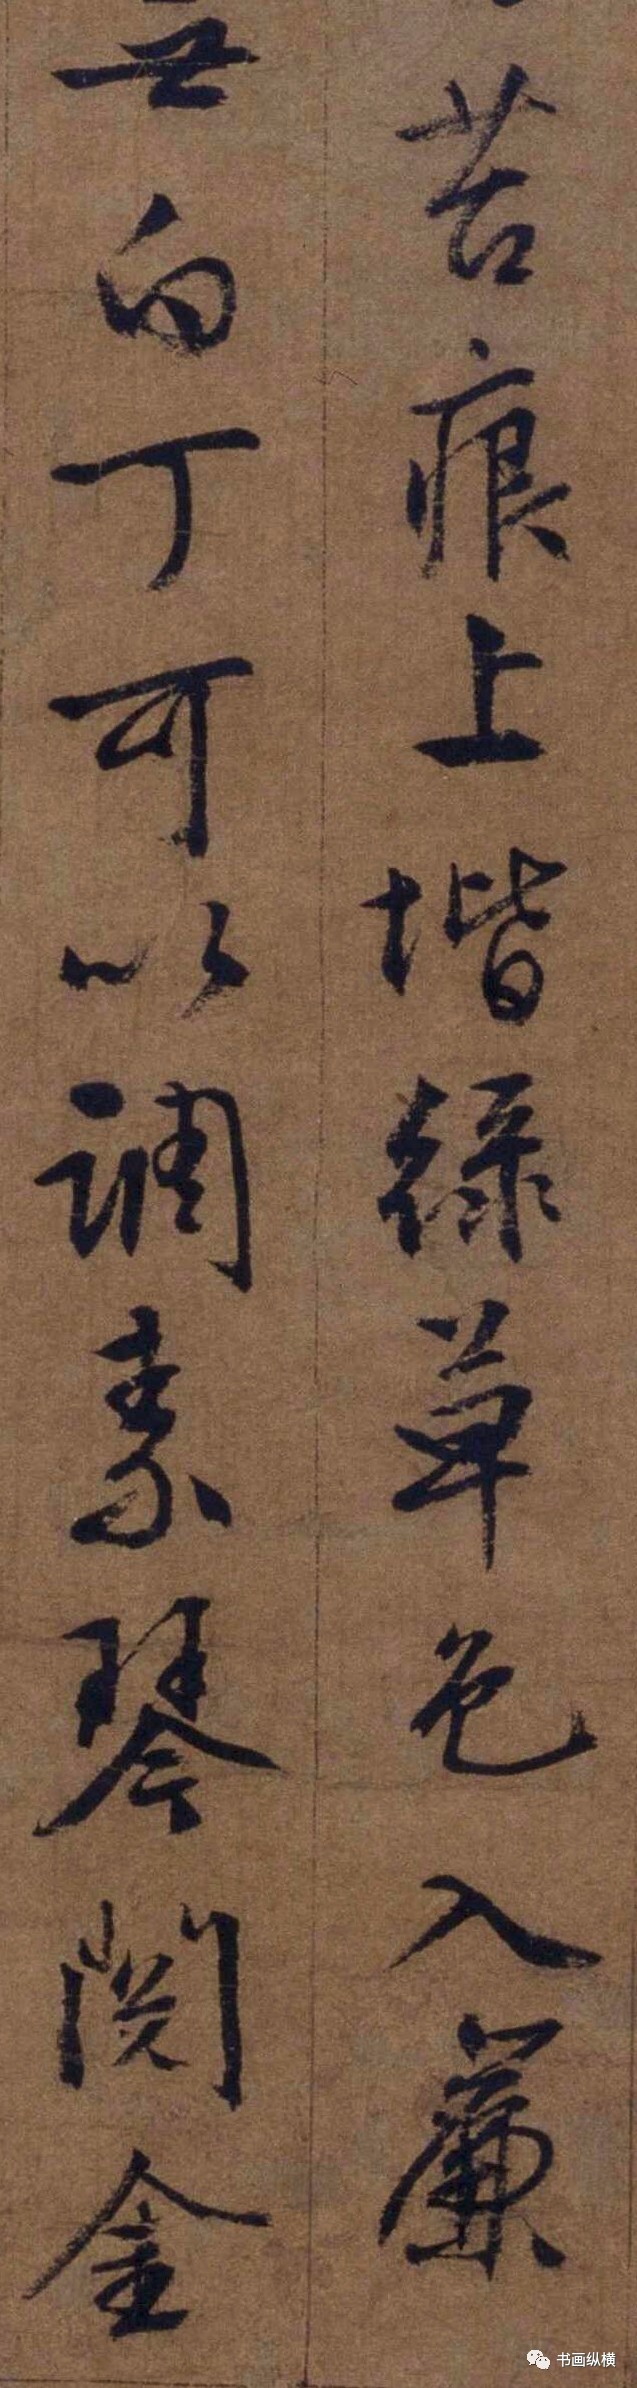 苔痕上堦绿草色入簾
無白丁可以调素琴阅金
书画纵横